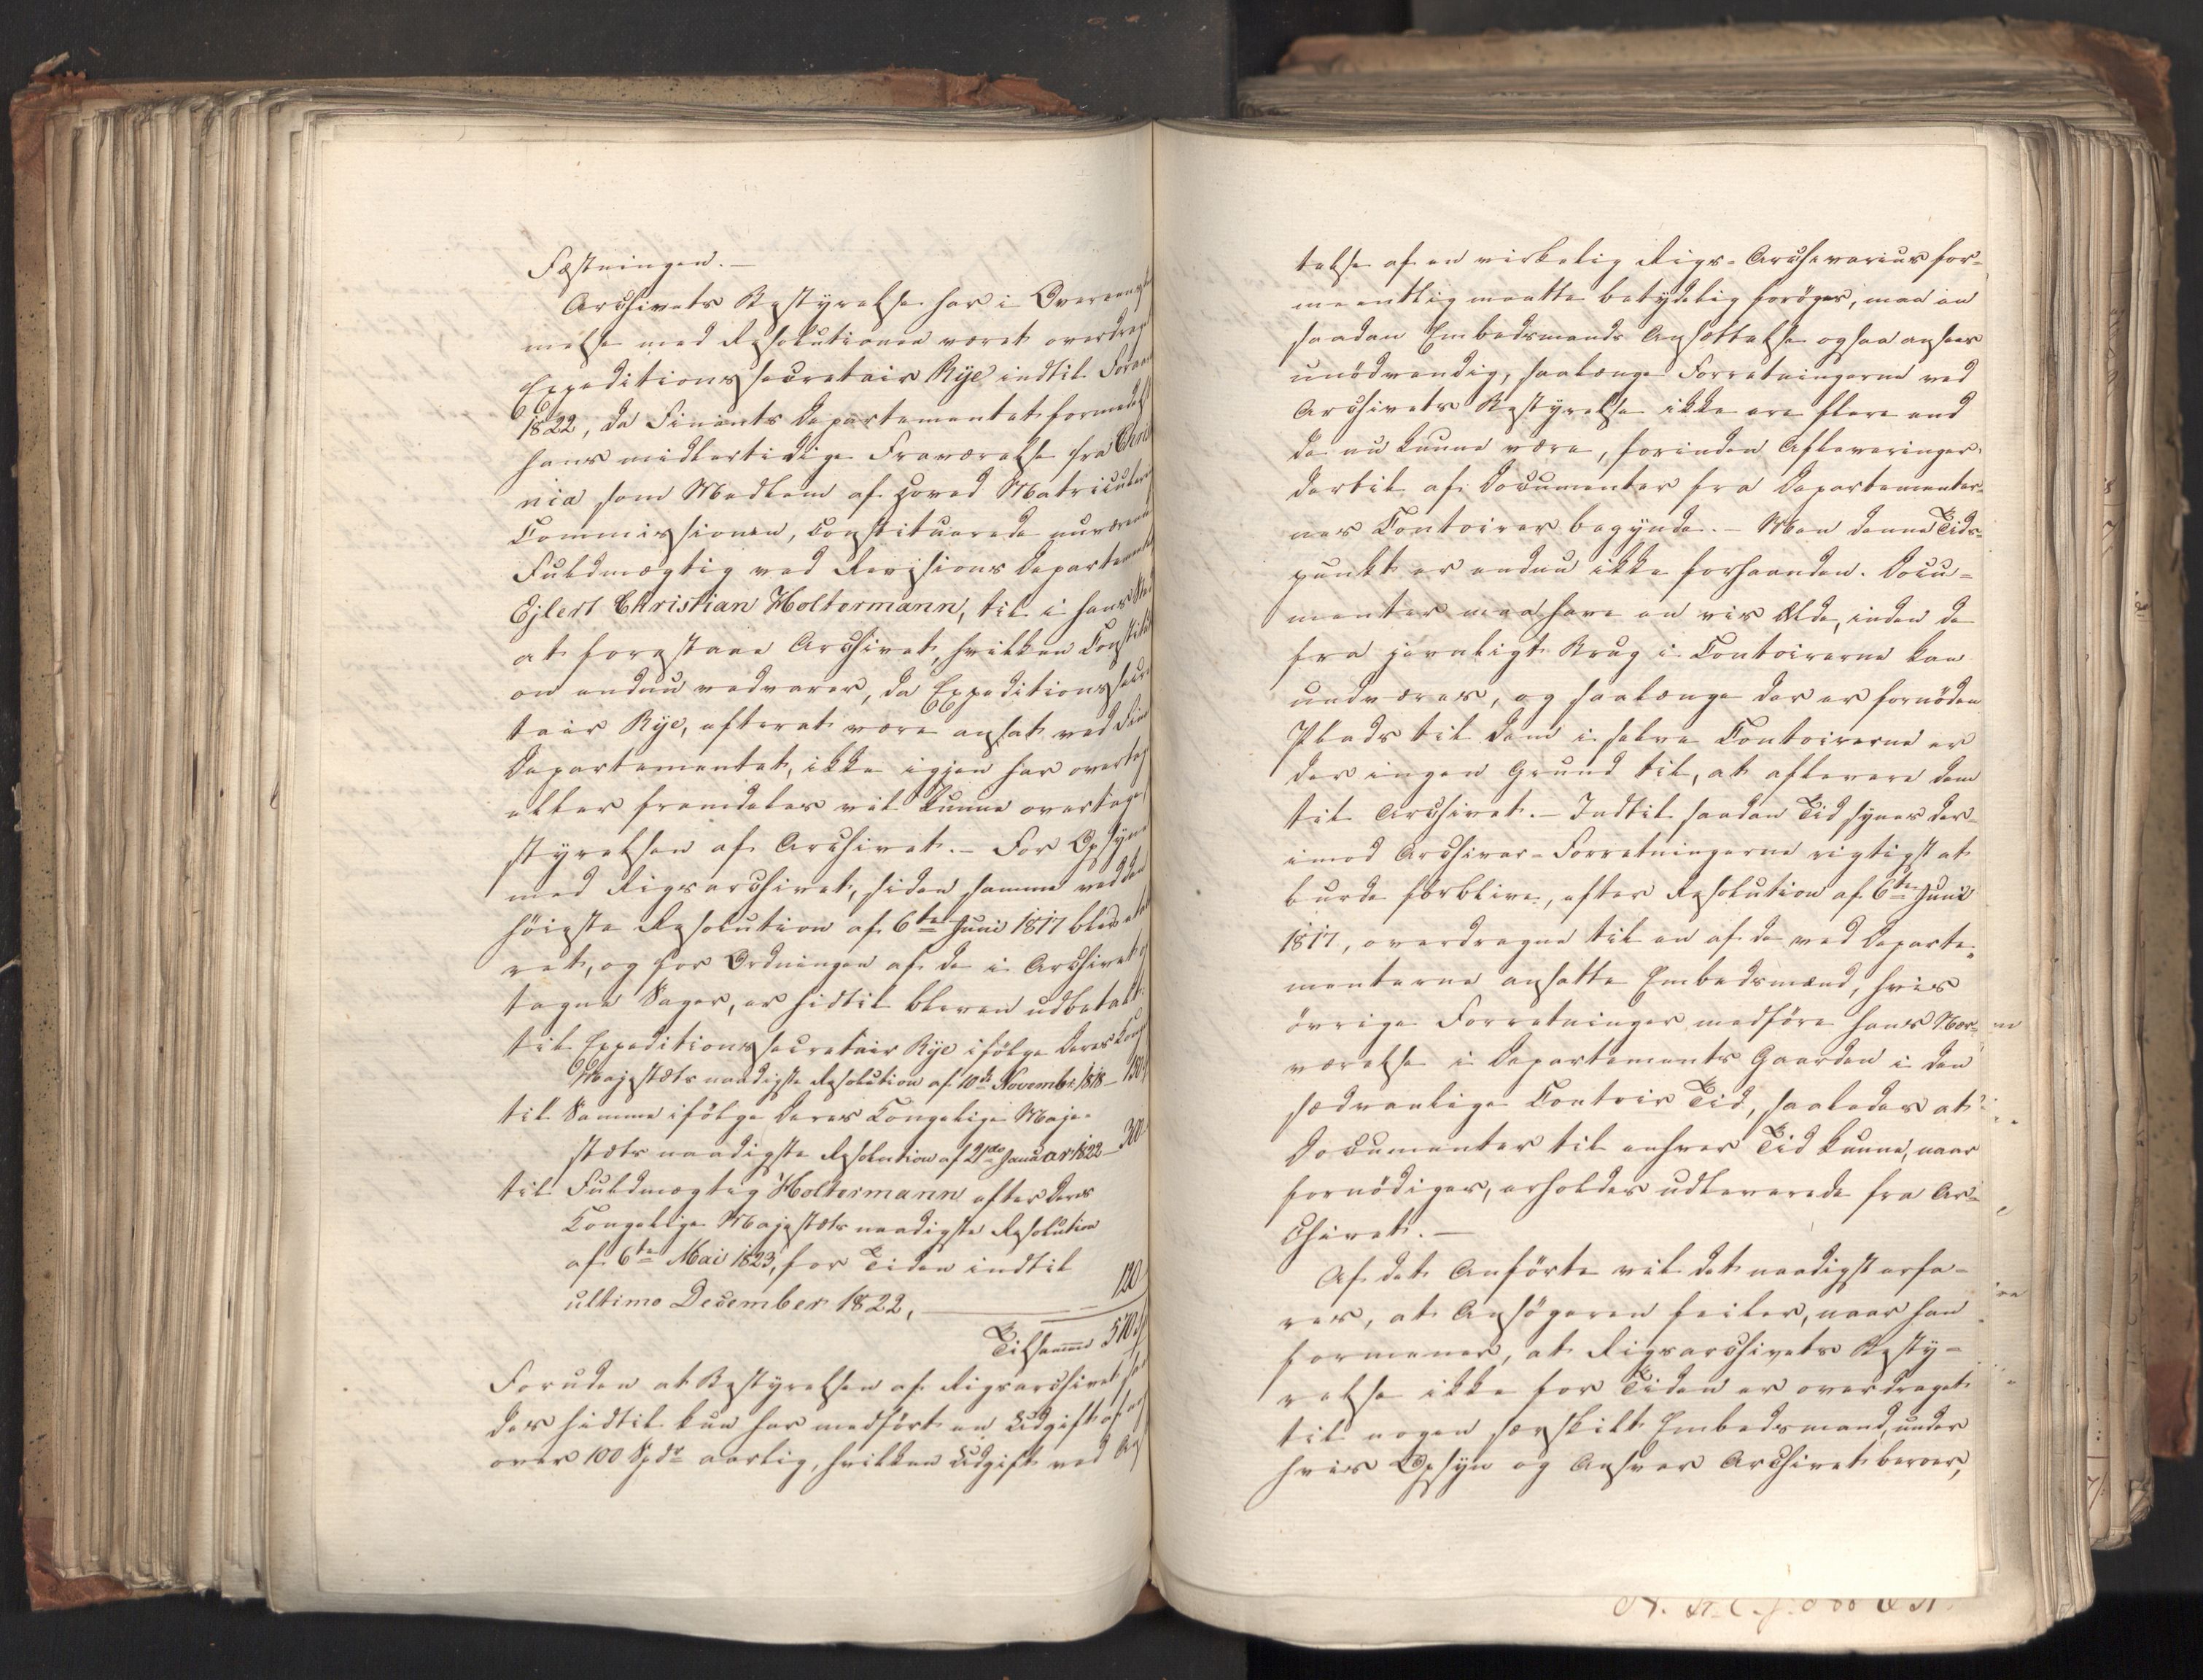 Fæstningen. —
Archivets Bestyrelse har i Overeens
melse med Resolutionen været overdrag
Expeditionssecretair Rÿe indtil Foraar
1822, da Finants Departementet formedelst
hans midlertidige Fraværelse fra Chris
nia som Medlem af Hoved Matriculerings
Commissionen, constituerede nuværende
Fuldmægtig ved Revisions Departementet
Ejlert Christian Holtermann, til i hans Sted
at forestaae Archivet, hvilken Constituti
on endnu vedvarer, da Expeditionssecre
tair Rÿe, efterat være ansat ved Fin
Departementet, ikke igjen har overtag
eller fremdeles vil kunne overtage
styrelsen af Archivet. — For Opsyne
med Rigsarchivet, siden samme ved den
höieste Resolution af 6te Juni 1817 blev etable
ret, og for Ordningen af de i Archivet
tagne Sager, er hidtil bleven udbetalt:
til Expeditionssecretair Rÿe ifölge Deres Konge
Majestæts naadigste Resolution af 10de November 1818 — 150
til Samme ifölge Deres Kongelige Maje-
stæts naadigste Resolution af 21de Januar 1822 — 300
til Fuldmægtig Holtermann efter Deres
Kongelige Majestæts naadigste Resolution
af 6te Mai 1823, for Tiden indtil
ultimo December 1822, — 120
Tilsammen 570
Foruden at Bestyrelsen af Rigsarchivet saa
des hidtil kun har medfört en Udgift af
over 100 Spdr aarlig, hvilken Udgift ved Ans
telse af en virkelig Rigs-Archivarius for-
meentlig maatte betydelig foröges, maa en
saadan Embedsmands Ansættelse ogsaa ansees
unödvendig, saalænge Forretningerne ved
Archivets Bestyrelse ikke ere flere end
de nu kunne være, forinden Afleveringer
dertil af Documenter fra Departementer-
nes Contoirer begynde. — Men denne Tids-
punkt er endnu ikke forhaanden. Docu-
menter maa have en vis Ælde, inden de
fra jevnligt Brug i Contoirerne kan
undværes, og saalænge der er fornöden
Plads til dem i selve Contoirerne er
der ingen Grund til, at aflevere dem
til Archivet. — Indtil saadan Tid synes der-
imod Archivar-Forretningerne rigtigst at
burde forblive, efter Resolution af 6te Juni
1817, overdragne til en af de ved Departe-
menterne ansatte Embedsmænd, hvis
övrige Forretninger medföre hans Nær-
værelse i Departements Gaarden i den
sædvanlige Contoir Tid, saaledes at
Documenter til enhver Tid kunne, naar
fornödiges, erholdes udleverede fra Ar-
chivet. —
Af det Anförte vil det naadigst erfa-
res, at Ansögeren feiler, naar han
formener, at Rigsarchivets Besty-
relse ikke for Tiden er overdraget
til nogen særskilt Embedsmand, under
hvis Opsyn og Ansvar Archivet beroer,